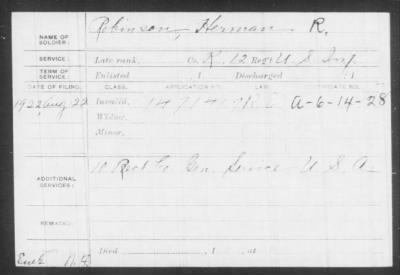 NAME OF SOLDIER: Robinson, Herman R.
SERVICE: Late rank, Co. K, 12 Reg't U S Inf.
TERM OF SERVICE: Enlisted , 1 Discharged , 1
DATE OF FILING. CLASS. APPLICATION NO. LAW. CERTIFICATE NO.
1922 Aug 22 Invalid, A-6-14-28
Widow,
Minor,
ADDITIONAL SERVICES: Gen. Service U. S. A
REMARKS:
Died , 1 , at